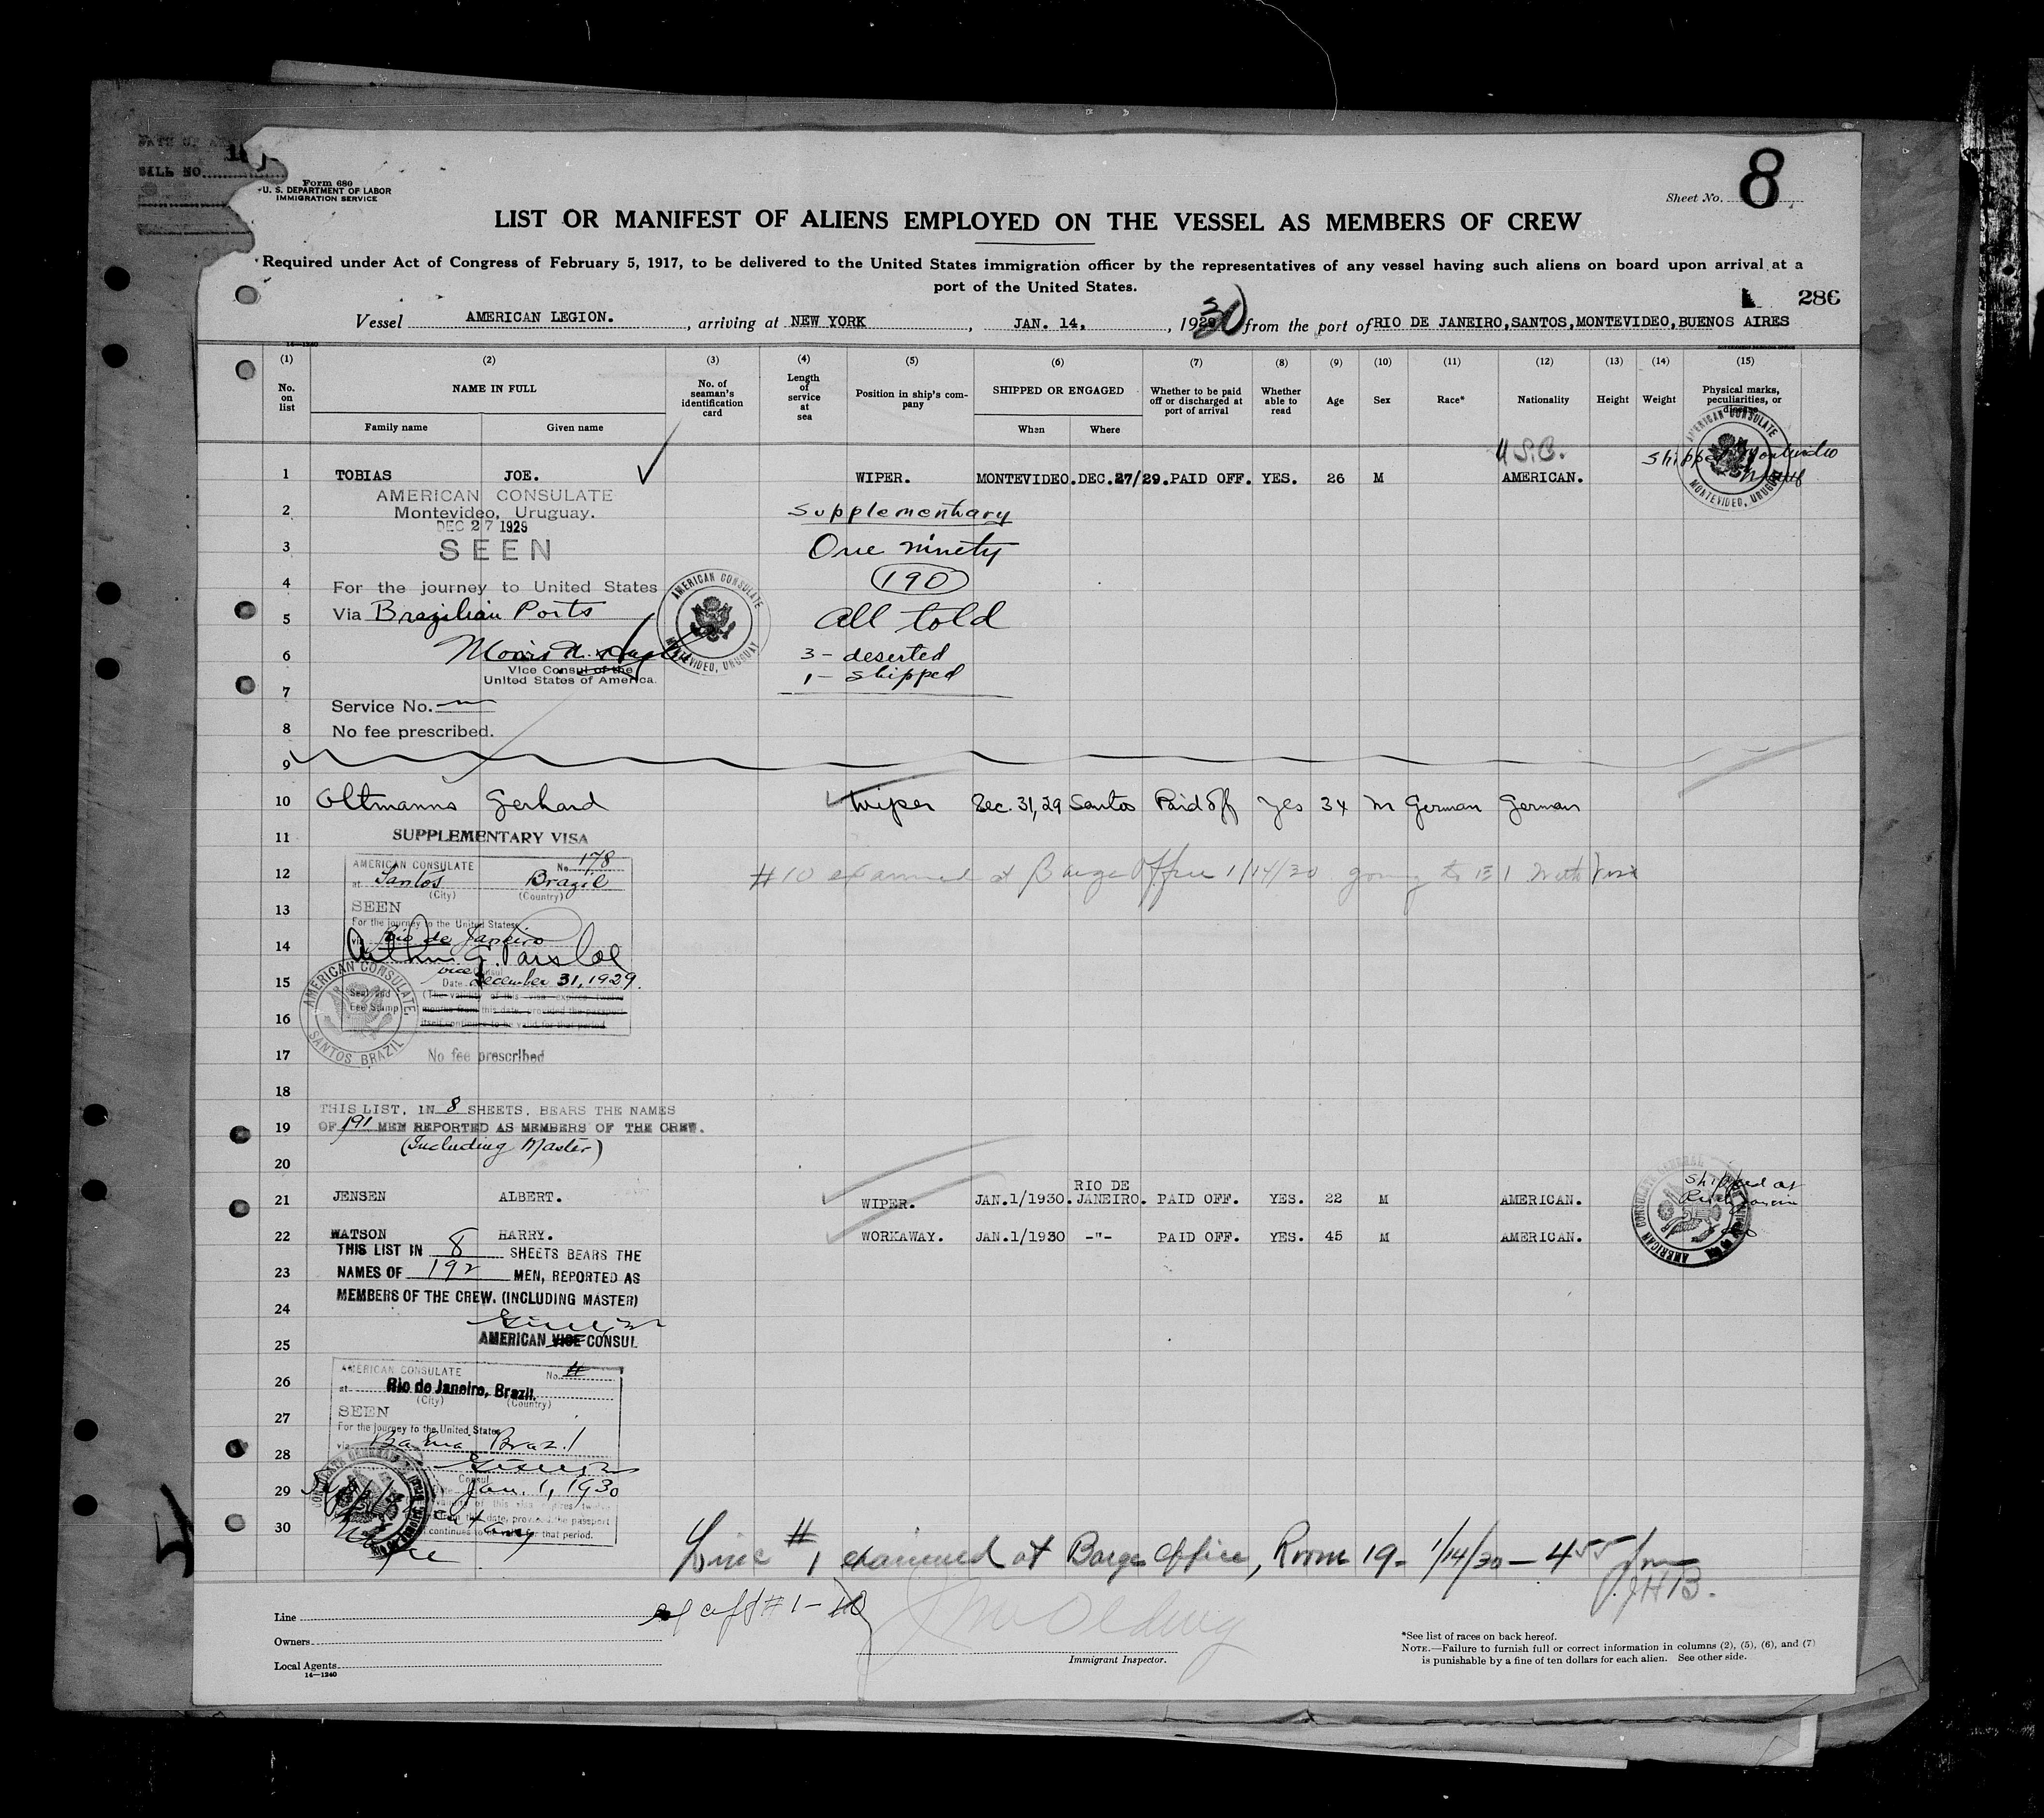 DATE OF
BILL NO.
Form 680
U. S. DEPARTMENT OF LABOR
IMMIGRATION SERVICE
Sheet No. 8
LIST OR MANIFEST OF ALIENS EMPLOYED ON THE VESSEL AS MEMBERS OF CREW
Required under Act of Congress of February 5, 1917, to be delivered to the United States immigration officer by the representatives of any vessel having such aliens on board upon arrival at a
port of the United States.
286
Vessel AMERICAN LEGION. , arriving at NEW YORK , JAN. 14, , 1930 from the port of RIO DE JANEIRO,SANTOS,MONTEVIDEO,BUENOS AIRES
14—1240
(1) (2) (3) (4) (5) (6) (7) (8) (9) (10) (11) (12) (13) (14) (15)
No. on list NAME IN FULL No. of seaman's identification card Length of service at sea Position in ship's company SHIPPED OR ENGAGED Whether to be paid off or discharged at port of arrival Whether able to read Age Sex Race* Nationality Height Weight Physical marks, peculiarities, or disease
Family name Given name When Where
U.S.C.
1 TOBIAS JOE. WIPER. MONTEVIDEO.DEC.27/29. PAID OFF. YES. 26 M AMERICAN. Shipped Montevideo
AMERICAN CONSULATE MONTEVIDEO, URUGUAY
AMERICAN CONSULATE
2 Montevideo, Uruguay. Supplementary
DEC 27 1929
3 SEEN One ninety
4 For the journey to United States (190)
5 Via Brazilian Ports All told
AMERICAN CONSULATE MONTEVIDEO, URUGUAY
6 3 - deserted
Vice Consul of the
United States of America. 1 - shipped
7 Service No.
8 No fee prescribed.
9
10 Oltmanns Gerhard Wiper Dec. 31, 29 Santos Paid off Yes 34 M German German
11 SUPPLEMENTARY VISA
AMERICAN CONSULATE No. 178
12 at Santos Brazil #10 examined at Barge Office 1/14/30 going to E I with
(City) (Country)
13 SEEN
For the journey to the United States
14 via Rio de Janeiro
Arthur G. Parsloe
vice Consul
15 Date December 31, 1929.
Seal and Fee Stamp (The validity of this visa expires twelve
16 months from this date, provided the passport
itself continues to be valid for that period
AMERICAN CONSULATE, SANTOS BRAZIL
17 No fee prescribed
18
THIS LIST, IN 8 SHEETS, BEARS THE NAMES
19 OF 191 MEN REPORTED AS MEMBERS OF THE CREW.
(Including Master)
20
21 JENSEN ALBERT. WIPER. JAN.1/1930. RIO DE JANEIRO. PAID OFF. YES. 22 M AMERICAN. Shipped at
22 WATSON HARRY. WORKAWAY. JAN.1/1930 -"- PAID OFF. YES. 45 M AMERICAN.
THIS LIST IN 8 SHEETS BEARS THE
23 NAMES OF 192 MEN, REPORTED AS
MEMBERS OF THE CREW. (INCLUDING MASTER)
24
25 AMERICAN VICE CONSUL
AMERICAN CONSULATE No.
26 at Rio de Janeiro, Brazil.
(City) (Country)
27 SEEN
For the journey to the United States
28 via Bahia Brazil
Consul
29 Jan. 1, 1930
validity of this visa expires twelve
this date, provided the passport
30 continues to be valid for that period.
Line #1 examined at Barge Office, Room 19 - 1/14/30 - 4 55 pm
J.H.B.
Line
Owners
Local Agents
14—1240
Immigrant Inspector.
*See list of races on back hereof.
NOTE.—Failure to furnish full or correct information in columns (2), (5), (6), and (7)
is punishable by a fine of ten dollars for each alien. See other side.